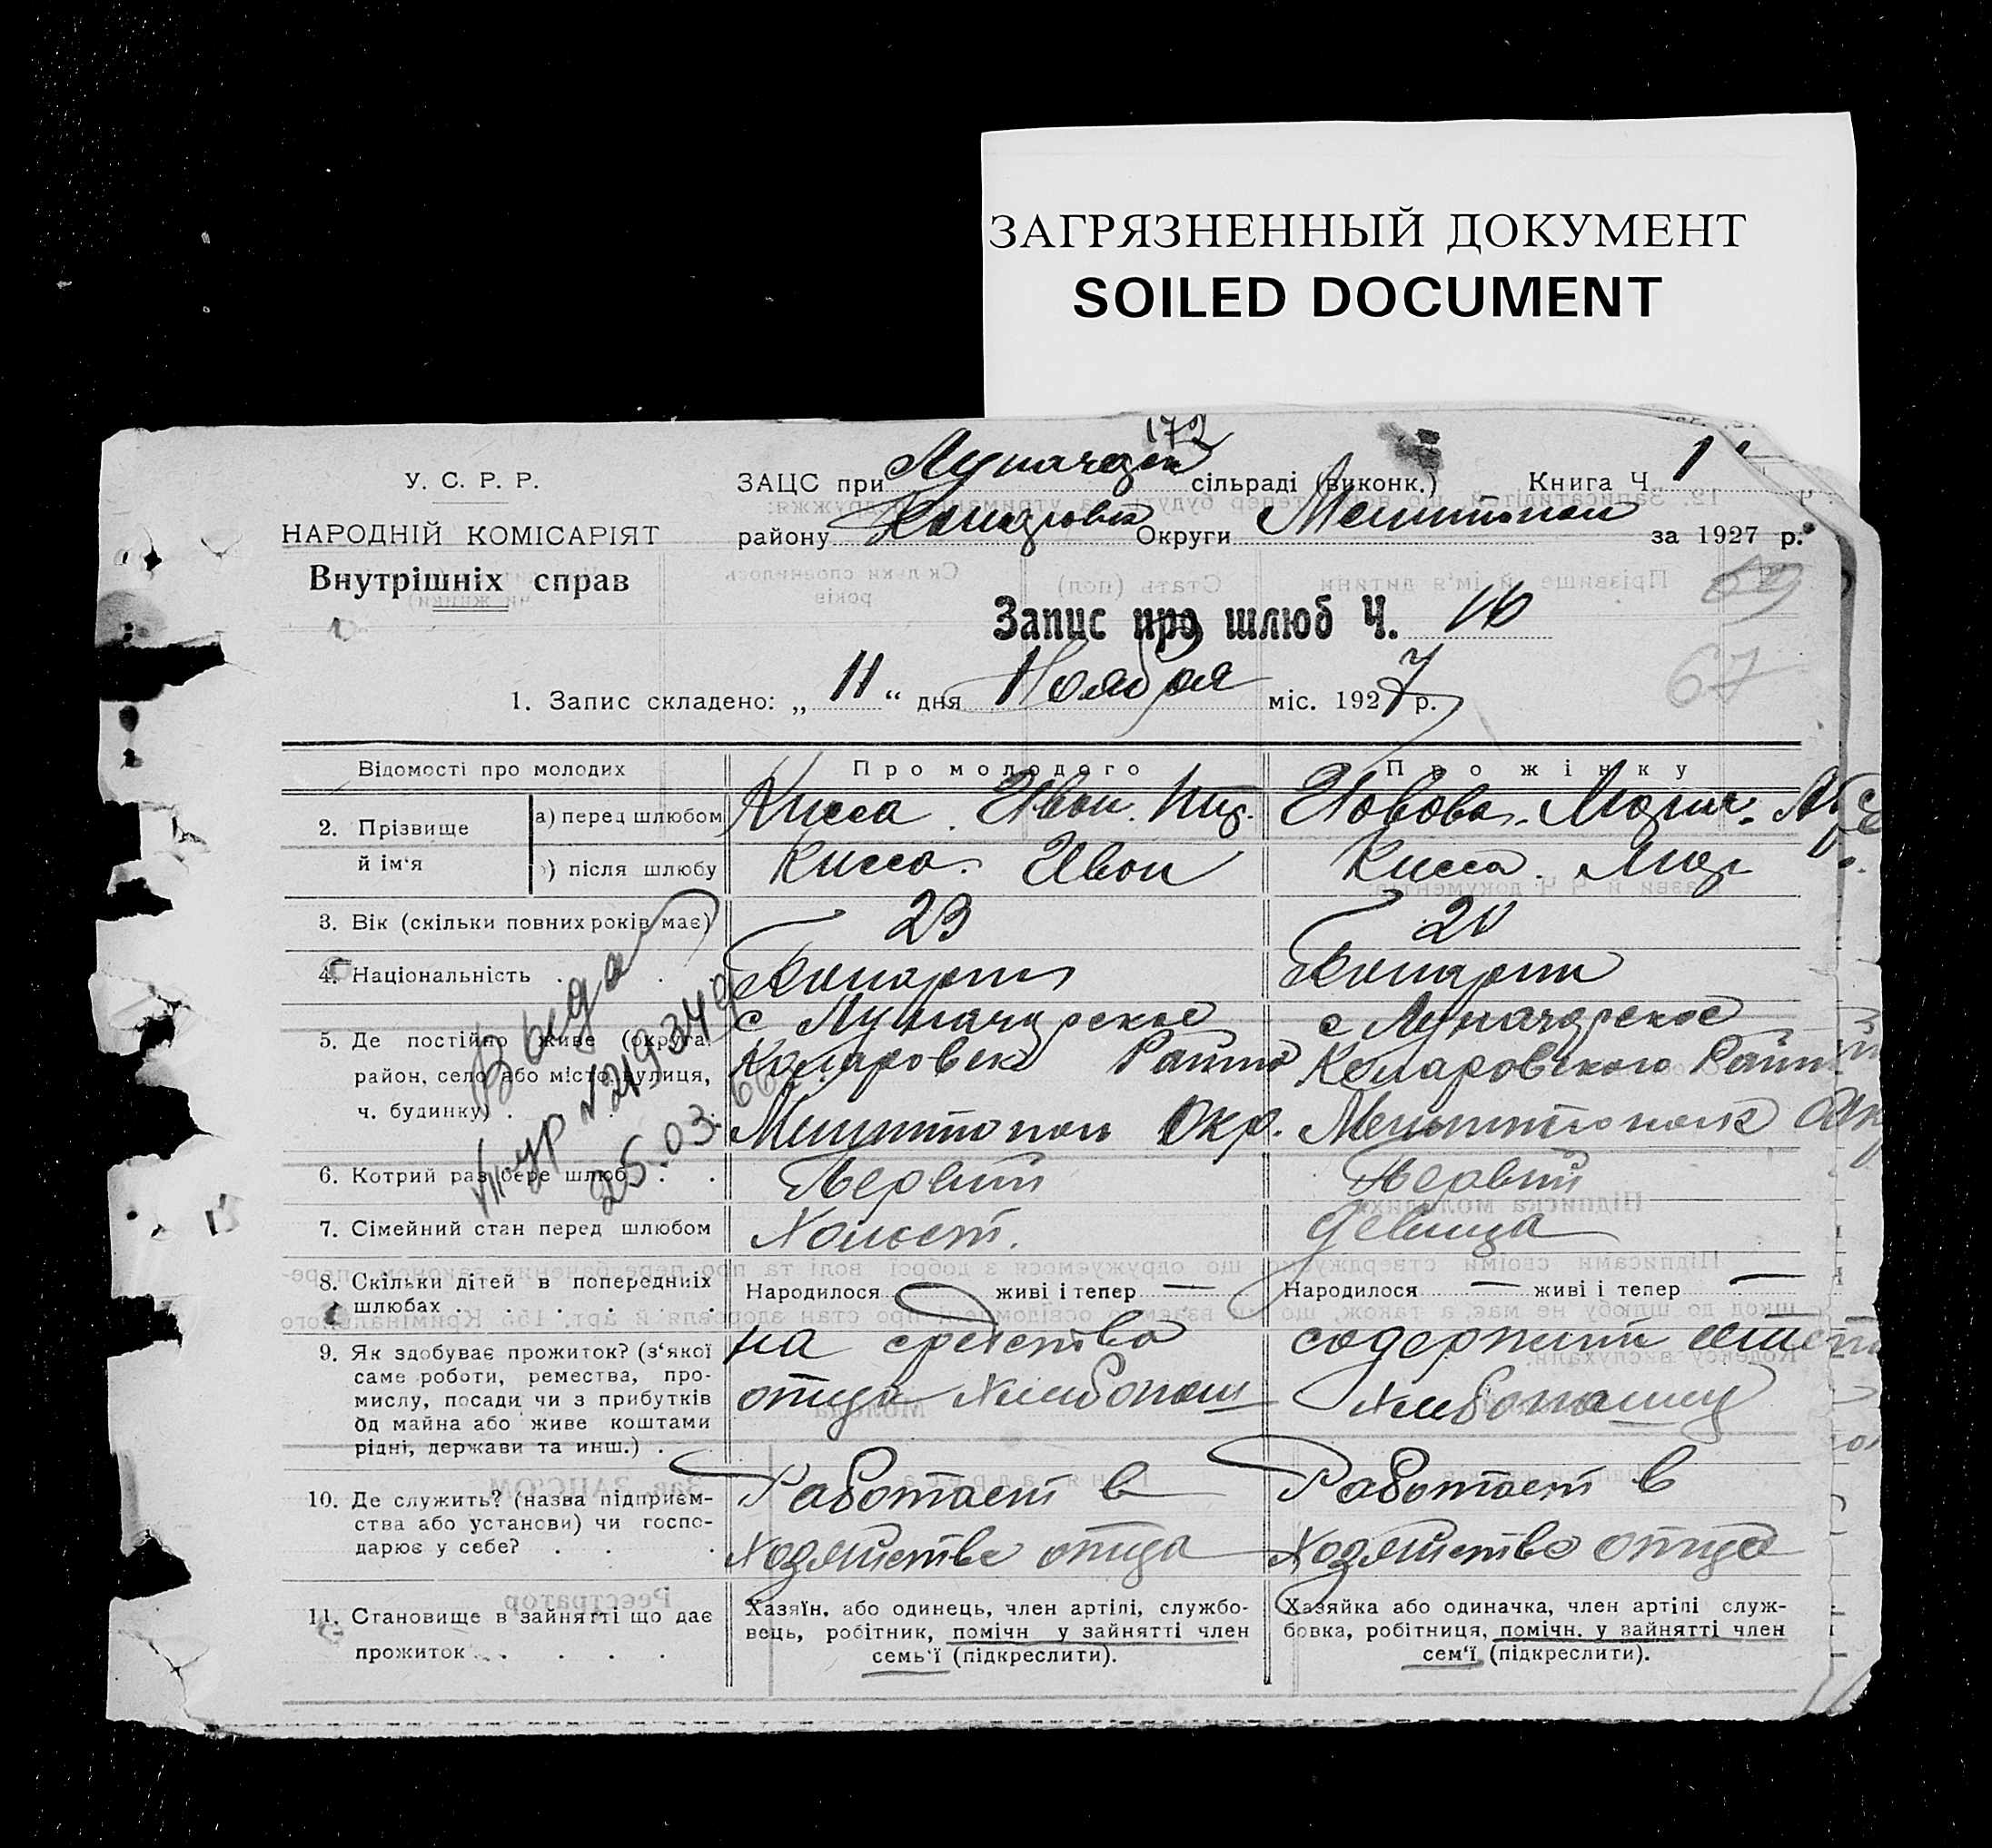 ЗАГРЯЗНЕННЫЙ ДОКУМЕНТ
SOILED DOCUMENT
172
У. С. Р. Р.
НАРОДНІЙ КОМІСАРІЯТ
Внутрішніх справ
ЗАЦС при сільраді (виконк.) Книга Ч. 1
району Округи за 1927 р.
69
Запис про шлюб Ч. 16
67
1. Запис складено: „ 11 “ дня Ноября міс. 1927 р.
Відомості про молодих
Про молодого
Про жінку
2. Прізвище й ім‘я
а) перед шлюбом
Кисса. Иван.
Мария.
) після шлюбу
Кисса. Иван
Кисса. Мар
3. Вік (скільки повних років має)
23
20
4. Національність
Болгарин
5. Де постійно живе (округа,
район, село або місто, вулиця,
ч. будинку)
с Луначарское
Коларовск Района
Окр.
с Луначарское
Коларовского
Окр
Выдан
219349
25.03.
6. Котрий раз бере шлюб
Первый
Первый
7. Сімейний стан перед шлюбом
Холост.
девица
8. Скільки дітей в попередниіх
шлюбах
Народилося — живі і тепер —
Народилося — живі і тепер —
9. Як здобуває прожиток? (з‘якої
саме роботи, ремества, про-
мислу, посади чи з прибутків
од майна або живе коштами
рідні, держави та инш.)
на средства
отца Хлебопаш
содержит отец
10. Де служить? (назва підприєм-
ства або установи) чи госпо-
дарює у себе?
Работает в
Хозяйстве отца
Работает в
Хозяйстве отца
11. Становище в зайнятті що дає
прожиток
Хазяїн, або одинець, член артілі, службо-
вець, робітник, помічн у зайнятті член
семь‘ї (підкреслити).
Хазяйка або одиначка, член артілі служ-
бовка, робітниця, помічн. у зайнятті член
сем‘ї (підкреслити).